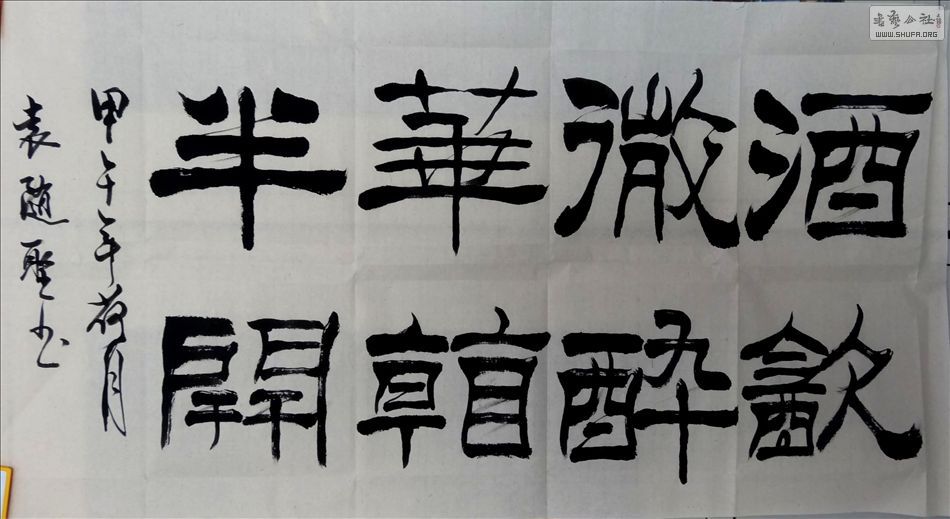 酒㱃
微醉
華看
半開
甲午年荷月
袁随聖书
书艺公社
WWW.SHUFA.ORG